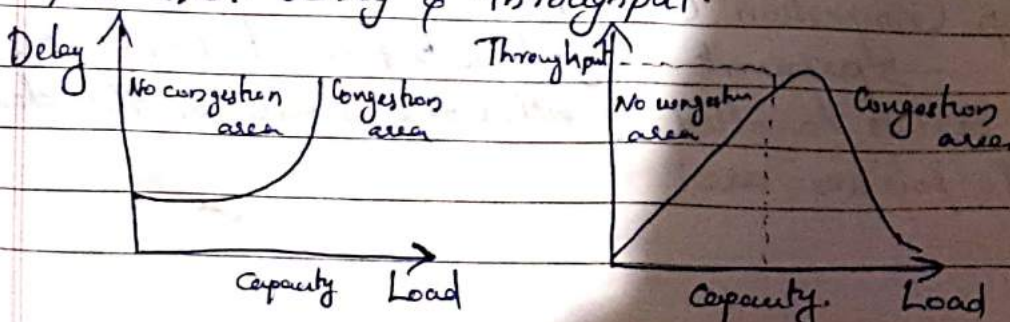 Delay & Throughput.
Delay
No congestion area
Congestion area
Capacity Load
Throughput
No congestion area
Congestion area
Capacity. Load